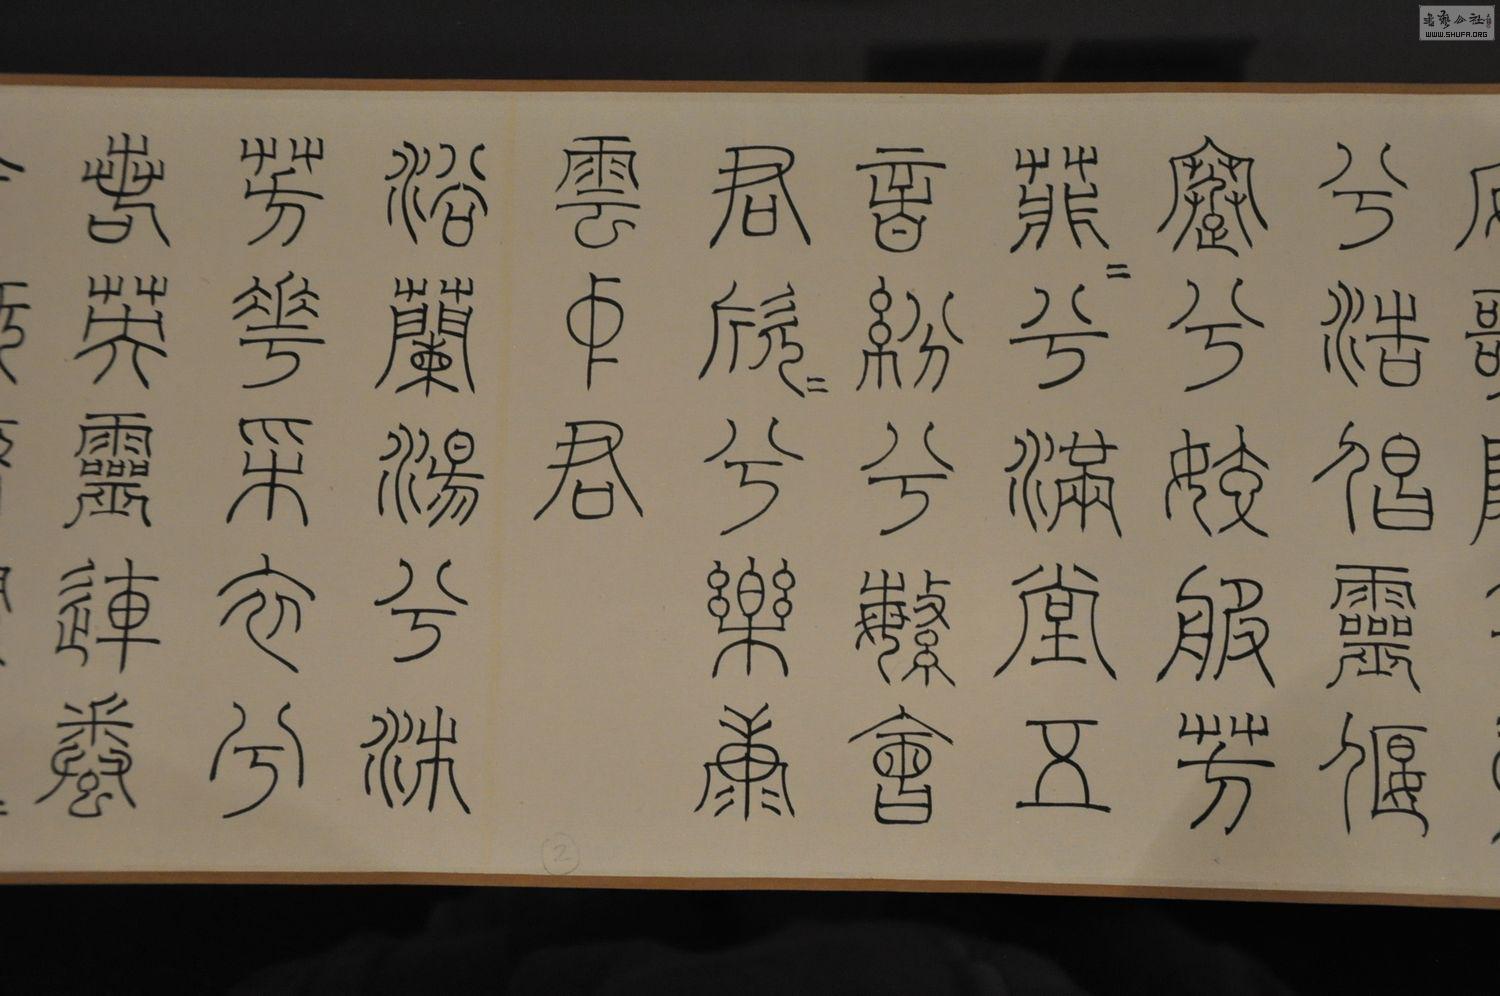 兮浩倡靈偃
蹇兮姣服芳
菲〓兮滿堂五
音紛兮繁會
君欣〓兮樂康
雲中君
浴蘭湯兮沐
芳華采衣兮
若英靈連蜷
②
書藝公社
WWW.SHUFA.ORG